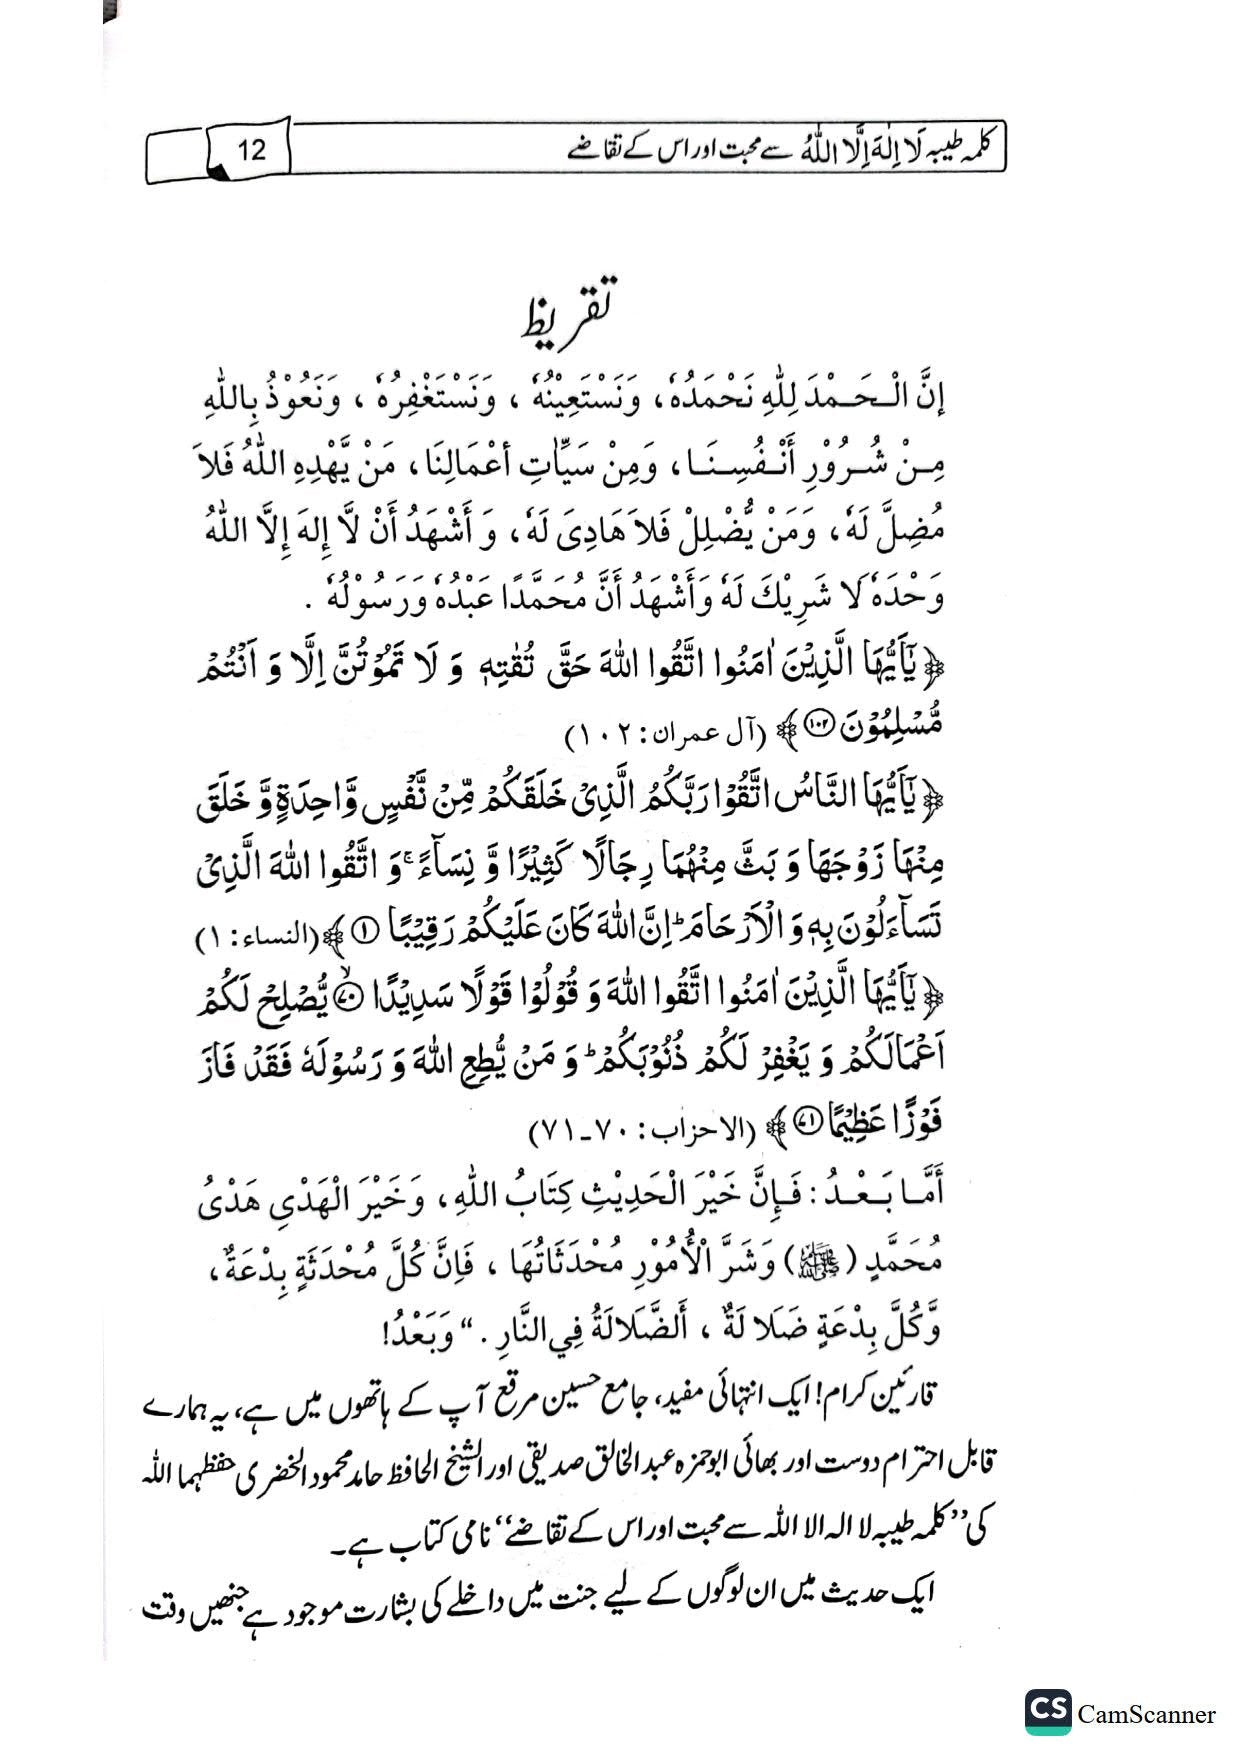 کلمہ طیبہ لَا اِلٰهَ اِلَّا اللّٰهُ سے محبت اور اس کے تقاضے
12
تقریظ
إِنَّ الْـحَـمْدَ لِلّٰهِ نَحْمَدُهٗ، وَنَسْتَعِيْنُهٗ ، وَنَسْتَغْفِرُهٗ ، وَنَعُوْذُ بِاللّٰهِ
مِـنْ شُـرُوْرِ أَنْـفُسِنَـا، وَمِنْ سَيِّاٰتِ أَعْمَالِنَا، مَنْ يَّهْدِهِ اللّٰهُ فَلاَ
مُضِلَّ لَهٗ، وَمَنْ يُّضْلِلْ فَلاَ هَادِىَ لَهٗ، وَ أَشْهَدُ أَنْ لَّا إِلهَ إِلَّا اللّٰهُ
وَحْدَهٗ لَا شَرِيْكَ لَهٗ وَأَشْهَدُ أَنَّ مُحَمَّدًا عَبْدُهٗ وَرَسُوْلُهٗ .
﴿ يٰۤاَيُّهَا الَّذِيْنَ اٰمَنُوا اتَّقُوا اللّٰهَ حَقَّ تُقٰتِهٖ وَ لَا تَمُوْتُنَّ اِلَّا وَ اَنْتُمْ
مُّسْلِمُوْنَ ۝۱۰۲ ﴾ (آل عمران: ۱۰۲)
﴿ يٰۤاَيُّهَا النَّاسُ اتَّقُوْا رَبَّكُمُ الَّذِىْ خَلَقَكُمْ مِّنْ نَّفْسٍ وَّاحِدَةٍ وَّ خَلَقَ
مِنْهَا زَوْجَهَا وَ بَثَّ مِنْهُمَا رِجَالًا كَثِيْرًا وَّ نِسَآءً ۚ وَ اتَّقُوا اللّٰهَ الَّذِىْ
تَسَآءَلُوْنَ بِهٖ وَ الْاَرْحَامَ ؕ اِنَّ اللّٰهَ كَانَ عَلَيْكُمْ رَقِيْبًا ۝۱ ﴾ (النساء: ۱)
﴿ يٰۤاَيُّهَا الَّذِيْنَ اٰمَنُوا اتَّقُوا اللّٰهَ وَ قُوْلُوْا قَوْلًا سَدِيْدًا ۝۷۰ۙ يُّصْلِحْ لَكُمْ
اَعْمَالَكُمْ وَ يَغْفِرْ لَكُمْ ذُنُوْبَكُمْ ؕ وَ مَنْ يُّطِعِ اللّٰهَ وَ رَسُوْلَهٗ فَقَدْ فَازَ
فَوْزًا عَظِيْمًا ۝۷۱ ﴾ (الاحزاب: ۷۰۔۷۱)
أَمَّـا بَـعْـدُ : فَـإِنَّ خَيْرَ الْحَدِيْثِ كِتَابُ اللّٰهِ، وَخَيْرَ الْهَدْيِ هَدْىُ
مُحَمَّدٍ (ﷺ) وَشَرَّ الْأُمُوْرِ مُحْدَثَاتُهَا ، فَإِنَّ كُلَّ مُحْدَثَةٍ بِدْعَةٌ،
وَّكُلَّ بِدْعَةٍ ضَلَالَةٌ ، أَلضَّلَالَةُ فِي النَّارِ . “ وَبَعْدُ!
قارئین کرام! ایک انتہائی مفید، جامع حسین مرقع آپ کے ہاتھوں میں ہے، یہ ہمارے
قابل احترام دوست اور بھائی ابوحمزہ عبدالخالق صدیقی اور الشیخ الحافظ حامد محمود الخضری حفظہما اللہ
کی ’’کلمہ طیبہ لا الہ الا اللہ سے محبت اور اس کے تقاضے‘‘ نامی کتاب ہے۔
ایک حدیث میں ان لوگوں کے لیے جنت میں داخلے کی بشارت موجود ہے جنھیں وقت
CS CamScanner